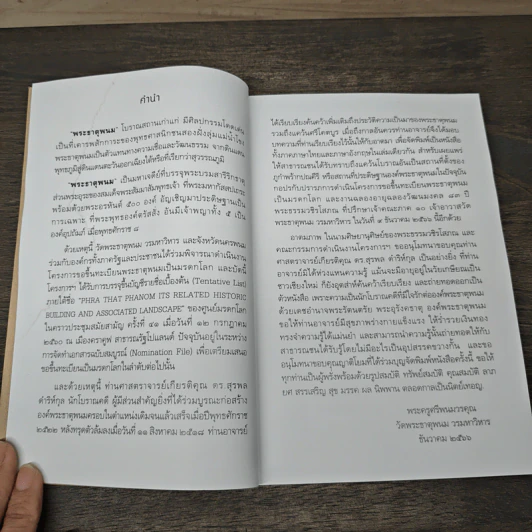 คำนำ
"พระธาตุพนม" โบราณสถานเก่าแก่ มีศิลปกรรมโดดเด่น
เป็นที่เคารพสักการะของพุทธศาสนิกชนสองฝั่งลุ่มแม่น้ำโขง
พระธาตุพนมเป็นตัวแทนทางความเชื่อและวัฒนธรรม จากดินแดน
พุทธภูมิสู่ดินแดนตะวันออกเฉียงใต้หรือที่เรียกว่าสุวรรณภูมิ
"พระธาตุพนม" เป็นมหาเจดีย์ที่บรรจุพระบรมสารีริกธาตุ
ส่วนพระอุระของสมเด็จพระสัมมาสัมพุทธเจ้า ที่พระมหากัสสปเถระ
พร้อมด้วยพระอรหันต์ ๕๐๐ องค์ อัญเชิญมาประดิษฐานเป็น
การเฉพาะ ที่พระพุทธองค์ตรัสสั่ง อันมีเจ้าพญาทั้ง ๕ เป็น
องค์อุปถัมภ์ เมื่อพุทธศักราช ๘
ด้วยเหตุนี้ วัดพระธาตุพนม วรมหาวิหาร และจังหวัดนครพนม
ร่วมกับองค์กรทั้งภาครัฐและประชาชนได้ร่วมพิจารณาดำเนินงาน
โครงการขอขึ้นทะเบียนพระธาตุพนมเป็นมรดกโลก และบัดนี้
โครงการฯ ได้รับการบรรจุขึ้นบัญชีรายชื่อเบื้องต้น (Tentative List)
ภายใต้ชื่อ "PHRA THAT PHANOM ITS RELATED HISTORIC
BUILDING AND ASSOCIATED LANDSCAPE" ของศูนย์มรดกโลก
ในคราวประชุมสมัยสามัญ ครั้งที่ ๔๑ เมื่อวันที่ ๑๒ กรกฎาคม
๒๕๖๐ ณ เมืองคราคูฟ สาธารณรัฐโปแลนด์ ปัจจุบันอยู่ในระหว่าง
การจัดทำเอกสารฉบับสมบูรณ์ (Nomination File) เพื่อเตรียมเสนอ
ขอขึ้นทะเบียนเป็นมรดกโลกในลำดับต่อไปนั้น
และด้วยเหตุนี้ ท่านศาสตราจารย์เกียรติคุณ ดร.สุรพล
ดำริห์กุล นักโบราณคดี ผู้มีส่วนสำคัญยิ่งที่ได้ร่วมบูรณะก่อสร้าง
องค์พระธาตุพนมครอบในตำแหน่งเดิมจนแล้วเสร็จเมื่อปีพุทธศักราช
๒๕๒๒ หลังทรุดตัวล้มลงเมื่อวันที่ ๑๑ สิงหาคม ๒๕๑๘ ท่านอาจารย์
ได้เรียบเรียงค้นคว้าเพิ่มเติมถึงประวัติความเป็นมาของพระธาตุพนม
รวมถึงแคว้นศรีโคตรบูร เมื่อถึงกาลอันควรท่านอาจารย์จึงได้มอบ
บทความที่ท่านเรียบเรียงไว้นั้นให้กับอาตมา เพื่อจัดพิมพ์เป็นหนังสือ
ทั้งภาคภาษาไทยและภาษาอังกฤษในเล่มเดียวกัน สำหรับเผยแพร่
ให้สาธารณชนได้รับทราบถึงแคว้นโบราณอันเป็นสถานที่ตั้งของ
ภูกำพร้าปณคีรี หรือสถานที่ประดิษฐานองค์พระธาตุพนมในปัจจุบัน
กอปรกับปรารภการดำเนินโครงการขอขึ้นทะเบียนพระธาตุพนม
เป็นมรดกโลก และงานฉลองอายุฉลองวัฒนมงคล ๘๓ ปี
พระธรรมวชิรโสภณ ที่ปรึกษาเจ้าคณะภาค ๑๐ เจ้าอาวาสวัด
พระธาตุพนม วรมหาวิหาร ในวันที่ ๙ ธันวาคม ๒๕๖๖ นี้อีกด้วย
อาตมภาพ ในนามศิษยานุศิษย์ของพระธรรมวชิรโสภณ และ
คณะกรรมการดำเนินงานโครงการฯ ขออนุโมทนาขอบคุณท่าน
ศาสตราจารย์เกียรติคุณ ดร.สุรพล ดำริห์กุล เป็นอย่างยิ่ง ที่ท่าน
อาจารย์มิได้หวงแหนความรู้ แม้นจะมีอายุอยู่ในวัยเกษียณเป็น
ชาวเชียงใหม่ ก็ยังอุตส่าห์ค้นคว้าเรียบเรียง และถ่ายทอดออกเป็น
ตัวหนังสือ เพราะความเป็นนักโบราณคดีที่มีใจรักต่อองค์พระธาตุพนม
ด้วยเดชอำนาจพระรัตนตรัย พระอุรังคธาตุ องค์พระธาตุพนม
ขอให้ท่านอาจารย์มีสุขภาพร่างกายแข็งแรง ให้ร่ำรวยเงินทอง
ทรงจำความรู้ได้แม่นยำ และสามารถนำความรู้นั้นถ่ายทอดให้กับ
สาธารณชนได้รับรู้โดยไม่มีอะไรเป็นอุปสรรคขวางกั้น และขอ
อนุโมทนาขอบคุณญาติโยมที่ได้ร่วมบุญจัดพิมพ์หนังสือครั้งนี้ ขอให้
ทุกท่านเป็นผู้พรั่งพร้อมด้วยรูปสมบัติ ทรัพย์สมบัติ คุณสมบัติ ลาภ
ยศ สรรเสริญ สุข มรรค ผล นิพพาน ตลอดกาลเป็นนิตย์เทอญ.
พระครูศรีพนมวรคุณ
วัดพระธาตุพนม วรมหาวิหาร
ธันวาคม ๒๕๖๖